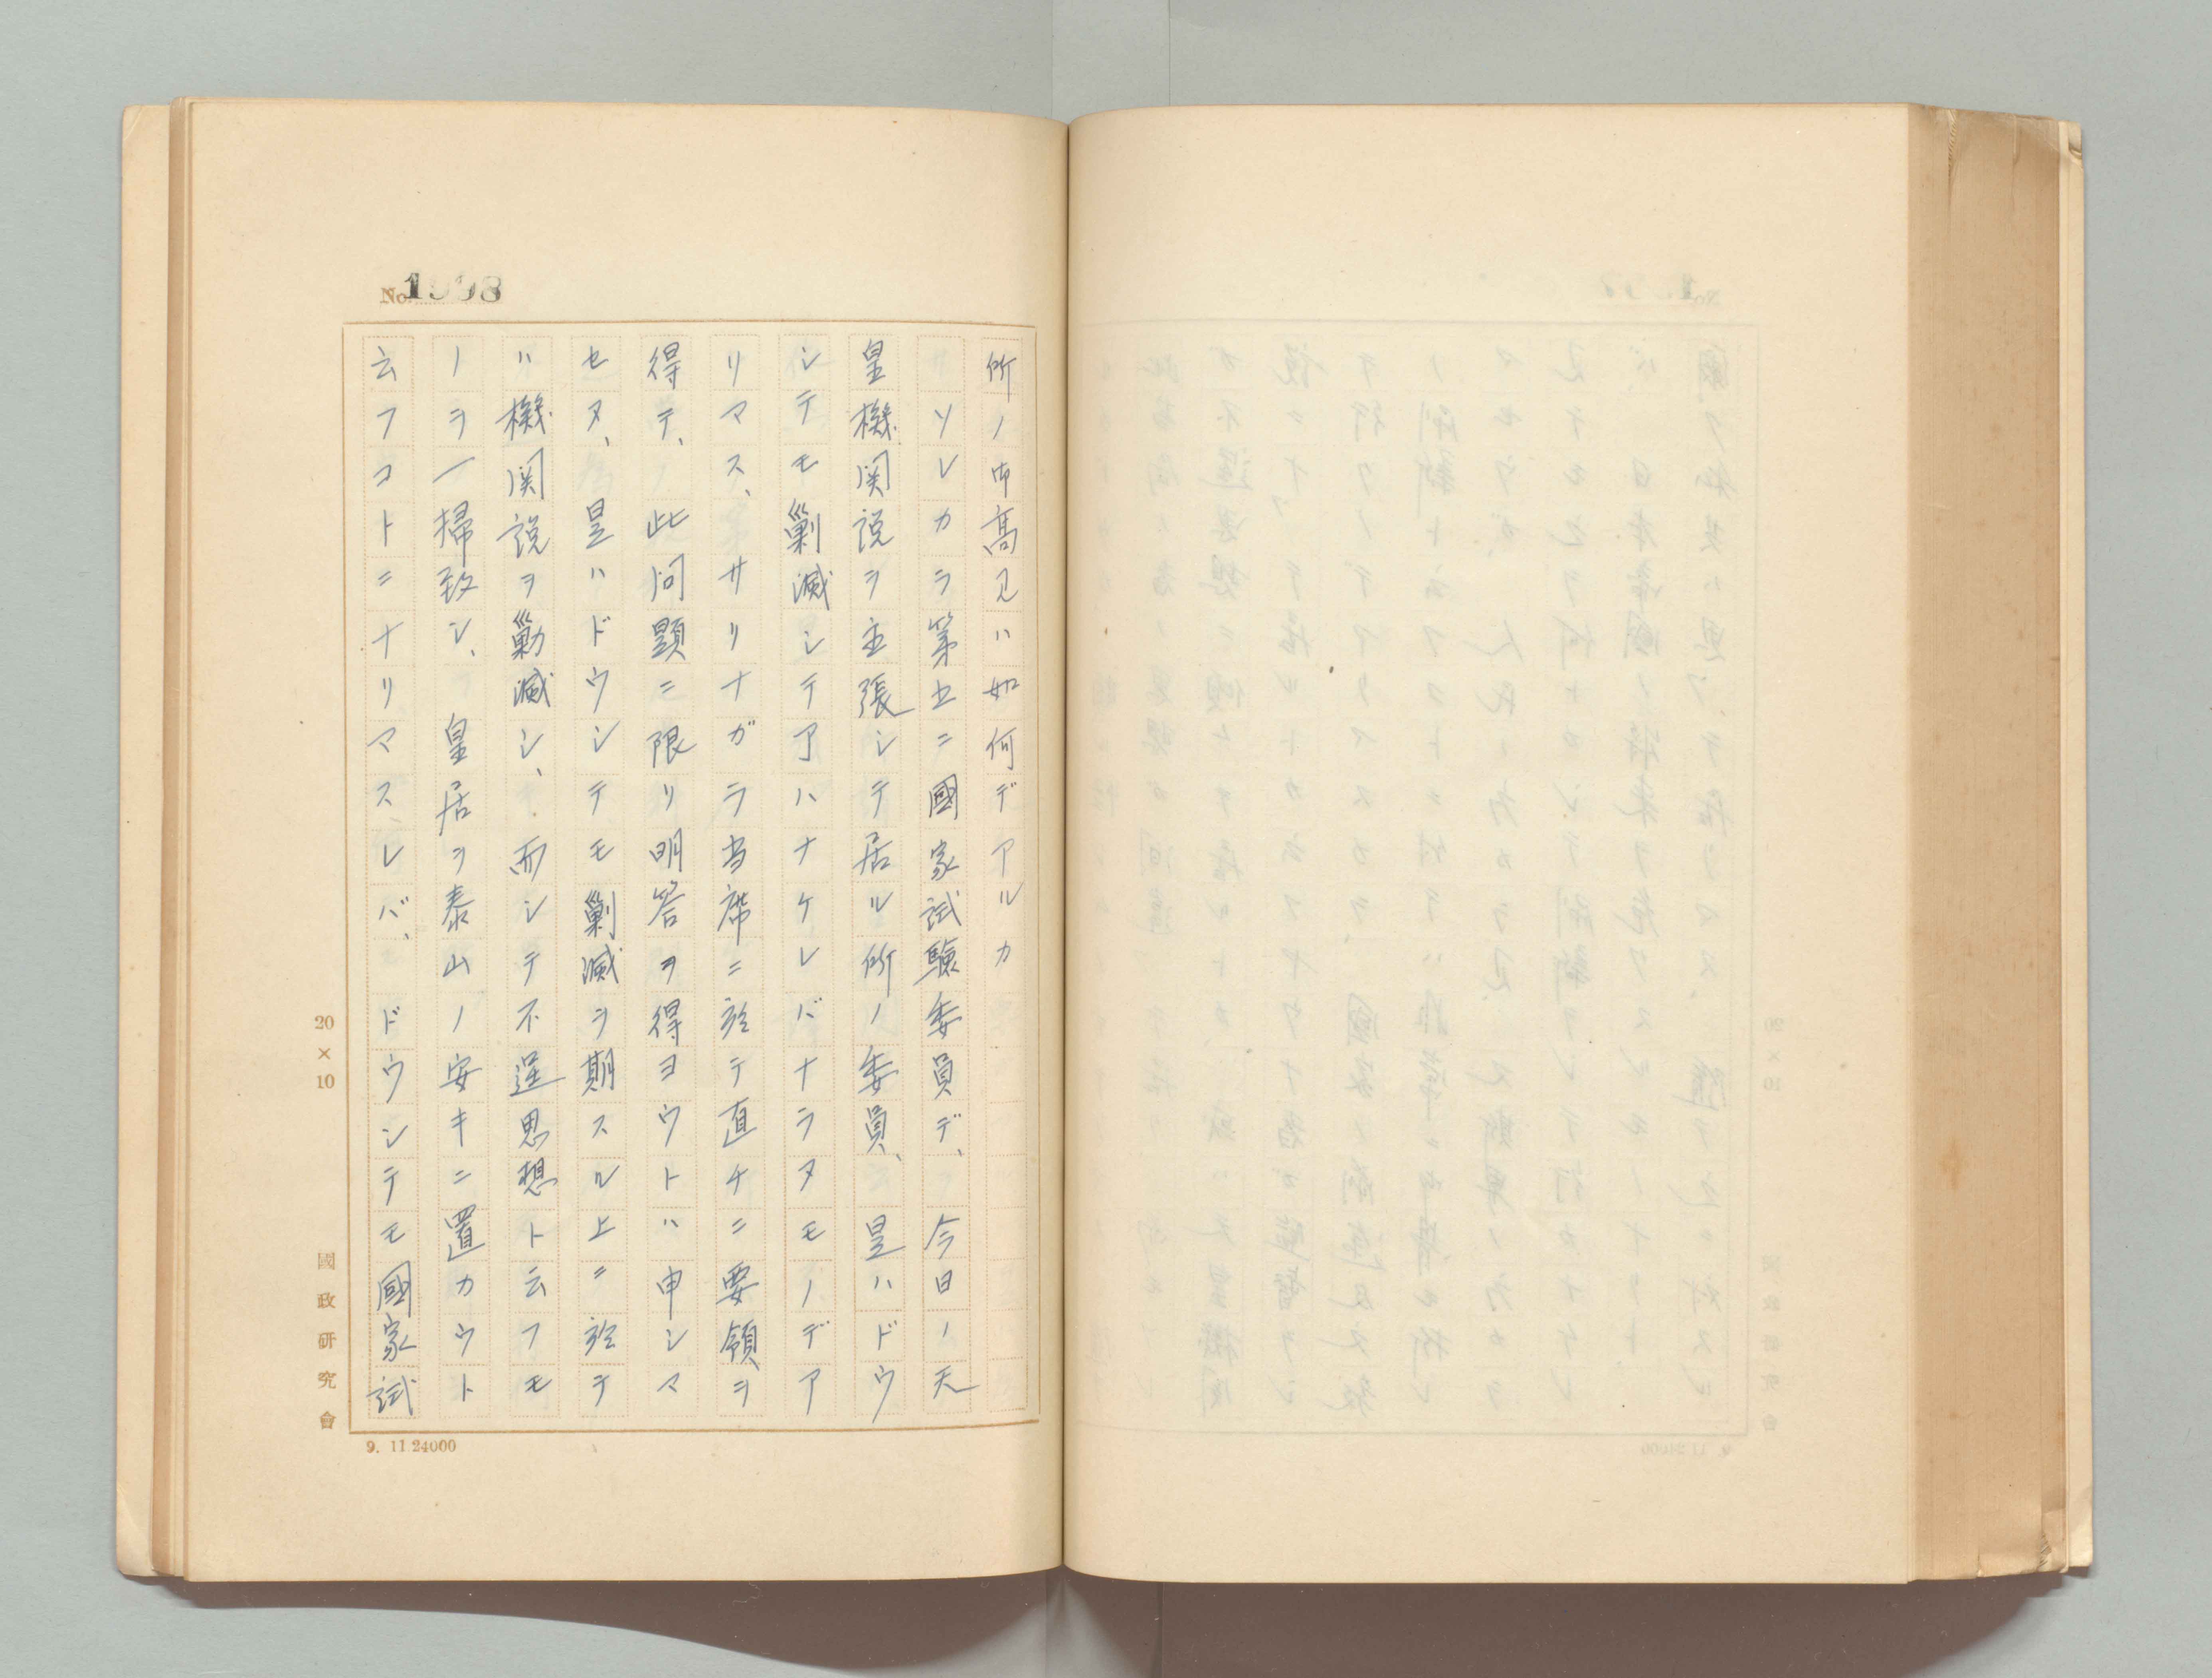 No. 1998
所ノ御高見ハ如何デアルカ
ソレカラ第五ニ國家試驗委員デ、今日ノ天
皇機関説ヲ主張シテ居ル所ノ委員、是ハドウ
シテモ剿滅シテ了ハナケレバナラヌモノデア
リマス、サリナガラ当席ニ於テ直チニ要領ヲ
得テ、此問題ニ限リ明答ヲ得ヨウトハ申シマ
セヌ、是ハドウシテモ剿滅ヲ期スル上ニ於テ
ハ機関説ヲ勦滅シ、而シテ不逞思想ト云フモ
ノヲ一掃致シ、皇居ヲ泰山ノ安キニ置カウト
云フコトニナリマスレバ、ドウシテモ國家試
20×10
國政研究會
9. 11.24000